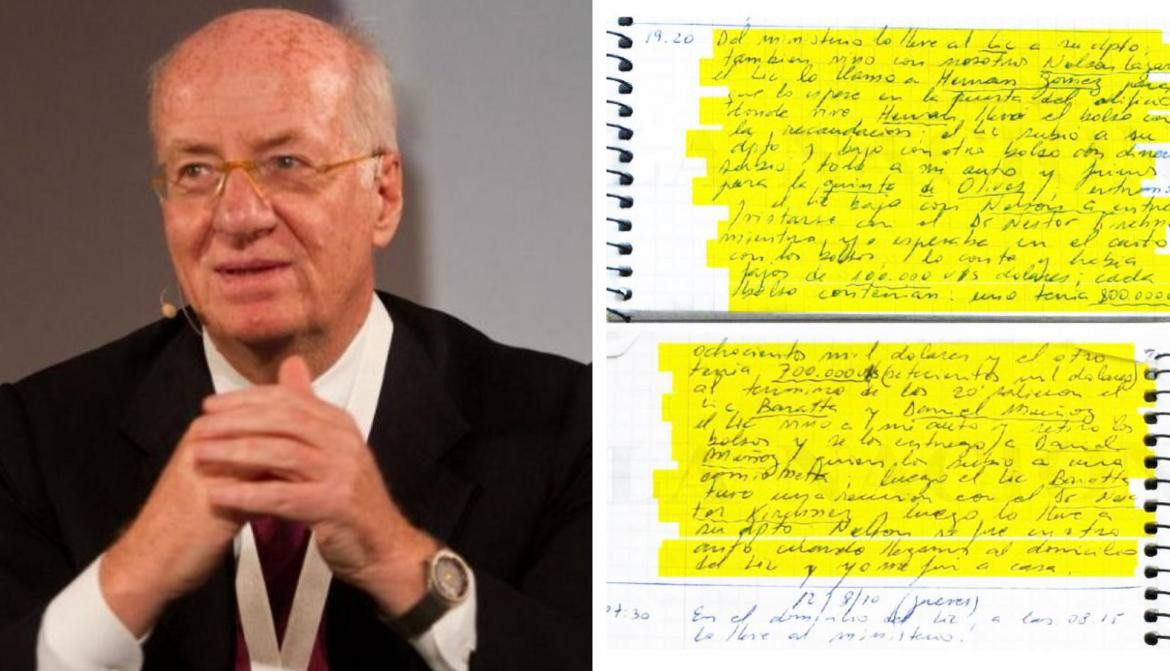 19.20 Del ministerio lo lleve al Lic a su dpto;
tambien vino con nosotros Nelson Lazar
el Lic lo llamo a Hernan Gomez para
que lo espere en la puerta del edificio
donde vive Hernan llevó el bolso con
la recaudacion; el Lic subio a su
dpto y bajo con otro bolso con dinero
subio todo a mi auto y fuimos
para la quinta de Olivos, entramos
y el Lic bajo con Nelson a entre
vistarse con el Dr Nestor Kirchn
mientras yo esperaba en el auto
con los bolsos, lo conte y habia
fajos de 100.000 U$S dolares; cada
bolso contenian: uno tenia 800.000
ochocientos mil dolares y el otro
tenia 700.000U$S (setecientos mil dolares)
al termino de los 20' salieron el
Lic Baratta y Daniel Muñoz
el Lic vino a mi auto y retiro los
bolsos y se los entrego a Daniel
Muñoz quien los subio a una
camioneta; luego el Lic Baratta
tuvo una reunion con el Dr Nes
tor Kirchner y luego lo lleve a
su dpto Nelson se fue en otro
auto cuando llegamos al domicilio
del Lic y yo me fui a casa.
12/8/10 (jueves)
7:30 En el domicilio del Lic, a las 08.15
lo lleve al ministerio.